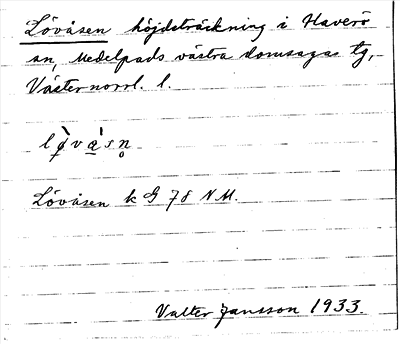 Lövåsen höjdsträckning i Haverö
sn, Medelpads västra domsagas tg,
Västernorrl. l.
lø̀vàsn̥
Lövåsen k G 78 N M.
Valter Jansson 1933.